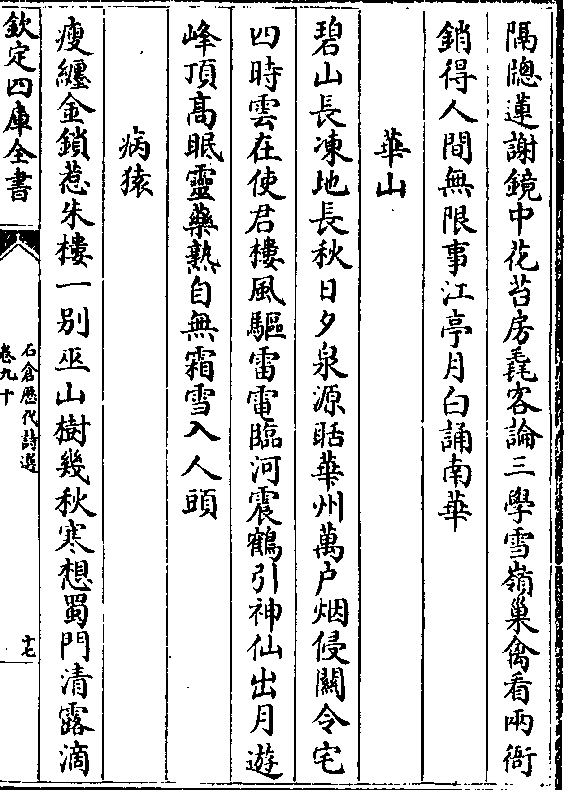 隔牕蓮謝鏡中花苔房毳客論三學雪嶺巢禽看兩衙
銷得人間無限事江亭月白誦南華
華山
碧山長凍地長秋日夕泉源聒華州萬户烟侵關令宅
四時雲在使君樓風驅雷電臨河震鶴引神仙出月遊
峰頂髙眠靈藥熟自無霜雪入人頭
病猿
瘦纏金鎖惹朱樓一别巫山樹幾秋寒想蜀門清露滴
欽定四庫全書
石倉歴代詩選
卷九十
十七